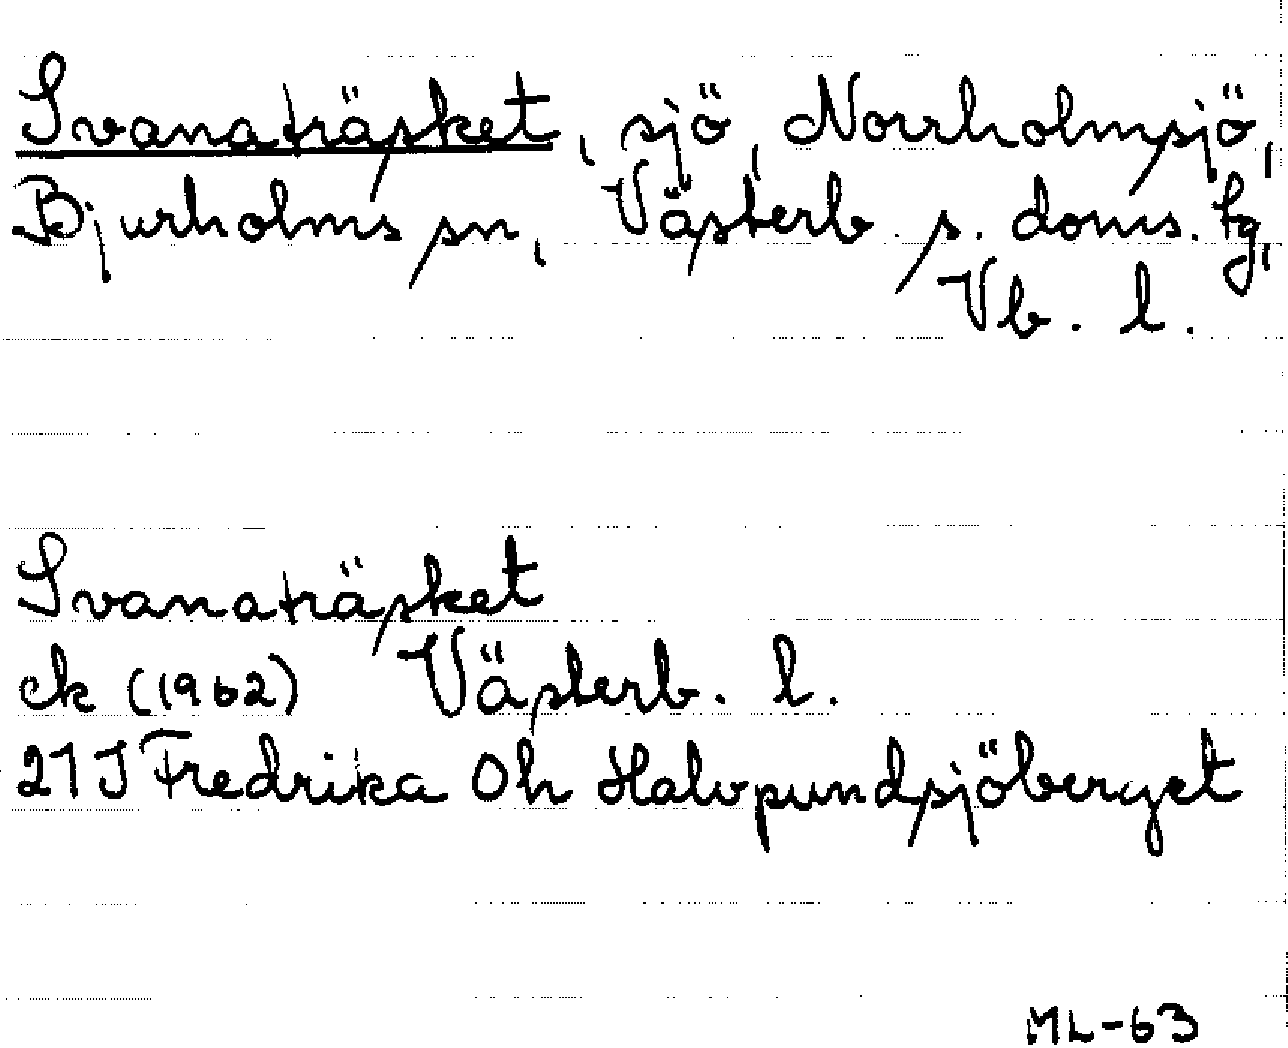 Svanaträsket, sjö, Norrholmsjö,
Bjurholms sn, Västerb. s. doms. tg,
Vb. l.
Svanaträsket
ek (1962) Västerb. l.
21J Fredrika 0h Halvpundsjöberget
ML-63